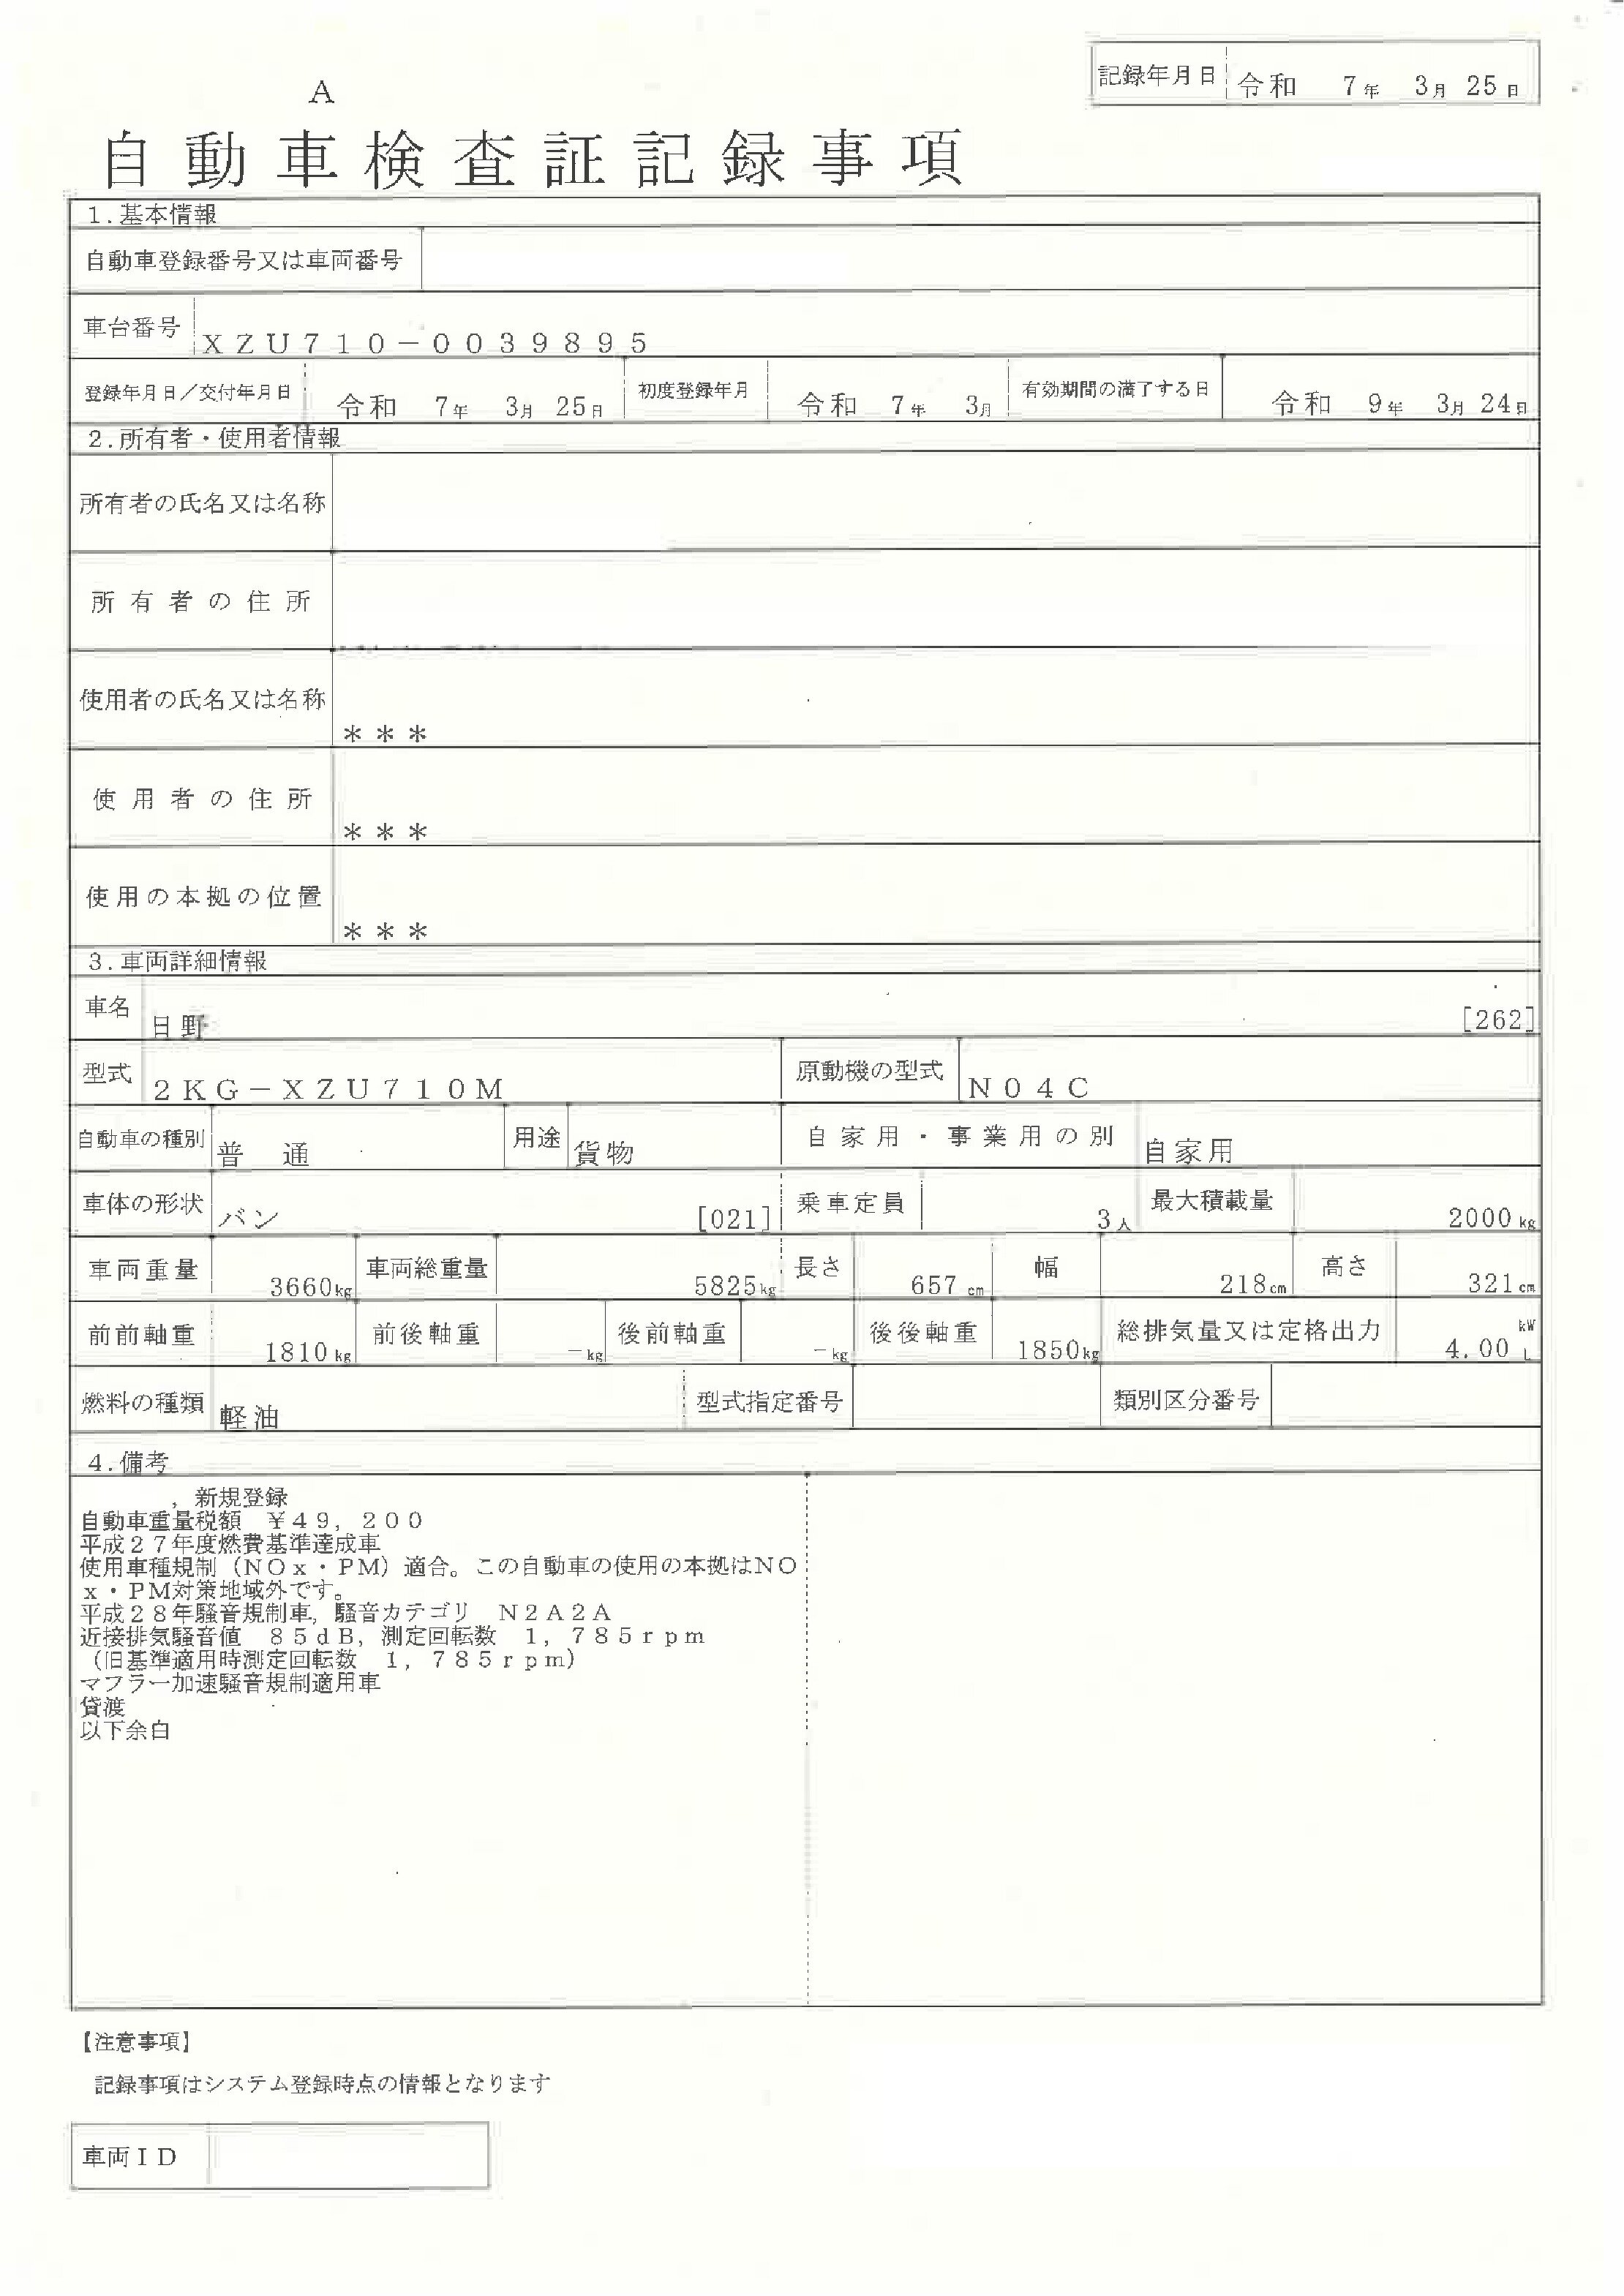 記録年月日 令和 7年 3月 25日
A
自動車検査証記録事項
1.基本情報
自動車登録番号又は車両番号
車台番号 XZU710-0039895
登録年月日/交付年月日 令和 7年 3月 25日 初度登録年月 令和 7年 3月 有効期間の満了する日 令和 9年 3月 24日
2.所有者・使用者情報
所有者の氏名又は名称
所有者の住所
使用者の氏名又は名称 ***
使用者の住所 ***
使用の本拠の位置 ***
3.車両詳細情報
車名 日野 [262]
型式 2KG-XZU710M 原動機の型式 N04C
自動車の種別 普 通 用途 貨物 自家用・事業用の別 自家用
車体の形状 バン [021] 乗車定員 3人 最大積載量 2000kg
車両重量 3660kg 車両総重量 5825kg 長さ 657cm 幅 218cm 高さ 321cm
前前軸重 1810kg 前後軸重 -kg 後前軸重 -kg 後後軸重 1850kg 総排気量又は定格出力 4.00 kW L
燃料の種類 軽油 型式指定番号 類別区分番号
4.備考
,新規登録
自動車重量税額 ¥49,200
平成27年度燃費基準達成車
使用車種規制(NOx・PM)適合。この自動車の使用の本拠はNO
x・PM対策地域外です。
平成28年騒音規制車,騒音カテゴリ N2A2A
近接排気騒音値 85dB,測定回転数 1,785rpm
(旧基準適用時測定回転数 1,785rpm)
マフラー加速騒音規制適用車
貸渡
以下余白
【注意事項】
記録事項はシステム登録時点の情報となります
車両ID